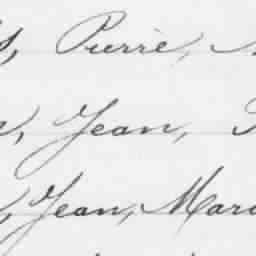 Pierre,
Jean,
Jean, Mar